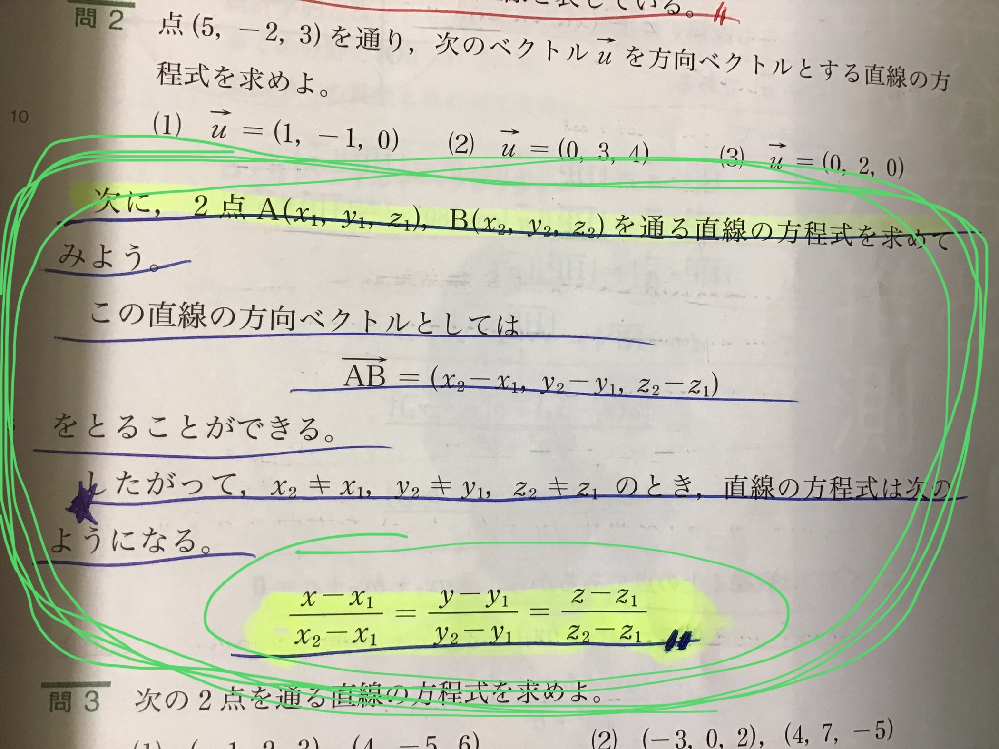 を表している。
問2 点(5, −2, 3)を通り，次のベクトル u→ を方向ベクトルとする直線の方
程式を求めよ。
10
(1) u→ = (1, −1, 0) (2) u→ = (0, 3, 4) (3) u→ = (0, 2, 0)
次に，2点 A(x₁, y₁, z₁)，B(x₂, y₂, z₂) を通る直線の方程式を求めて
みよう。
この直線の方向ベクトルとしては
AB→ = (x₂−x₁, y₂−y₁, z₂−z₁)
をとることができる。
したがって，x₂≠x₁，y₂≠y₁，z₂≠z₁ のとき，直線の方程式は次の
ようになる。
(x−x₁)/(x₂−x₁) = (y−y₁)/(y₂−y₁) = (z−z₁)/(z₂−z₁)
問3 次の2点を通る直線の方程式を求めよ。
(1) (4, −5, 6) (2) (−3, 0, 2), (4, 7, −5)